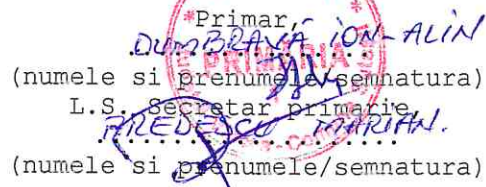 Primar,
DUMBRAVĂ ION-ALIN
(numele si prenumele/semnatura)
L.S. Secretar primarie
MARIAN.
(numele si prenumele/semnatura)
PRIMARIA